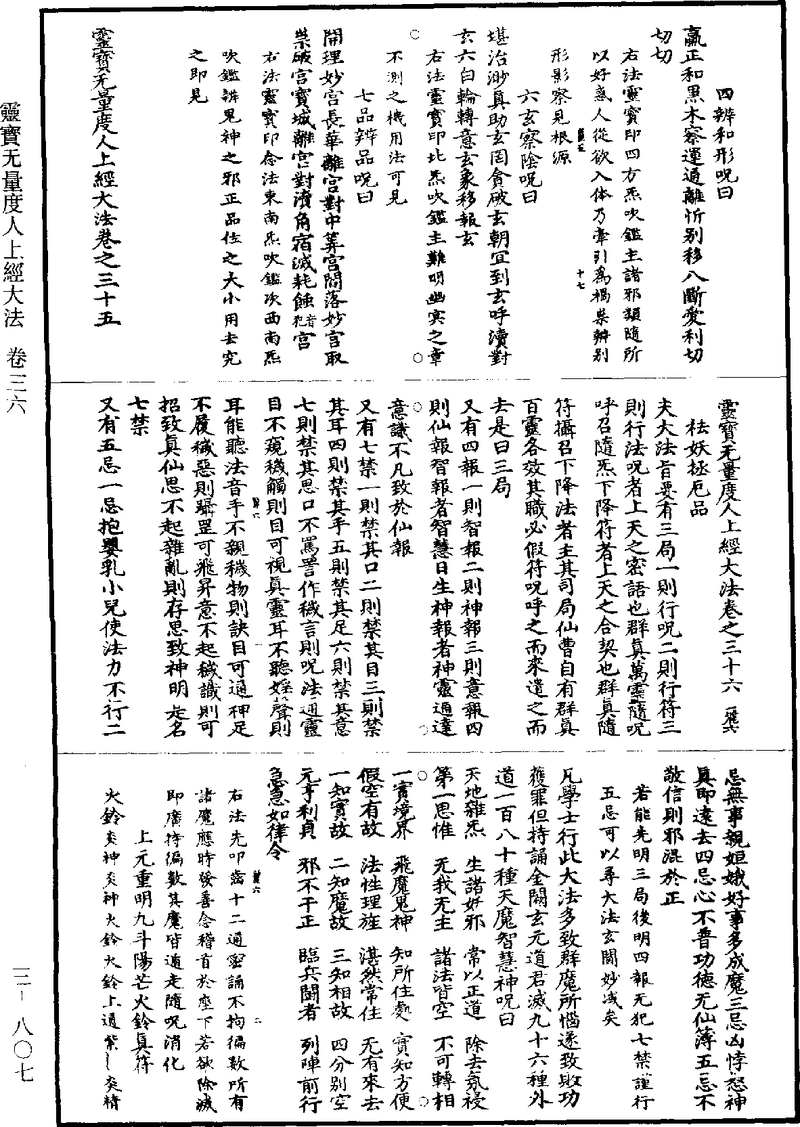 四辨和形呪曰
贏正和黑木察運通離忻别移八斷愛利切
切切
右法靈寶印四方炁吹鑑主諸邪類隨所
以好惑人從欲入体乃牽引為禍祟辨别
形影察見根源
十七
六玄察陰呪曰
堪治渺真助玄罔貪破玄朝宜到玄呼瀆對
玄六白輪轉意玄象移報玄
右法靈寶印北炁吹鑑主難明幽冥之章
不測之機用法可見
七品辨品呪曰
開理妙宫長華離宫對中筭宫閻落妙宫取
祟破宫寶城離宫對瀆角宿滅耗蝕宫
右法靈寶印念法東南炁吹鑑次西南炁
吹鑑辨鬼神之邪正品位之大小用去究
之即見
靈寶无量度人上經大法卷之三十五
靈寶无量度人上經大法卷之三十六
祛妖拯厄品
夫大法旨要有三局一則行呪二則行符三
則行法呪者上天之密語也群真萬靈隨呪
呼召隨炁下降符者上天之合契也群真隨
符攝召下降法者主其司局仙曹自有群真
百靈各效其職必假符呪呼之而來遣之而
去是曰三局
又有四報一則智報二則神報三則意報四
則仙報智報者智慧日生神報者神靈通達
意識不凡致於仙報
又有七禁一則禁其口二則禁其目三則禁
其耳四則禁其手五則禁其足六則禁其意
七則禁其思口不罵詈作穢言則呪法通靈
目不窺穢觸則目可視真靈耳不聽婬聲則
耳能聽法音手不親穢物則訣目可通神足
不履穢惡則躡罡可飛昇意不起穢識則可
招致真仙思不起雜亂則存思致神明是名
七禁
又有五忌一忌抱嬰乳小兒使法力不行二
忌無事親姮娥好事多成魔三忌凶悖怒神
真即遠去四忌心不普功德无仙簿五忌不
敬信則邪混於正
若能先明三局後明四報无犯七禁謹行
五忌可以尋大法玄關妙域矣
凡學士行此大法多致群魔所惱遂致敗功
獲罪但持誦金闕玄元道君滅九十六種外
道一百八十種天魔智慧神呪曰
天地雜炁　生諸妖邪　常以正道　除去氛祲
第一思惟　无我无主　諸法皆空　不可轉相
一實境界　飛魔鬼神　知所住處　實知方便
假空有故　法性理旌　湛然常住　无有來去
一知實故　二知魔故　三知相故　四分别空
元亨利貞　邪不干正　臨兵鬪者　列陣前行
急急如律令
右法先叩齒十二通密誦不拘徧數所有
諸魔應時發善念稽首於座下若欲除滅
即廣持徧數其魔皆遁走隨呪消化
上元重明九斗陽芒火鈴真符
火鈴炎神炎神火鈴火鈴上通紫炎精
靈寶无量度人上經大法　卷三六
三—八〇七